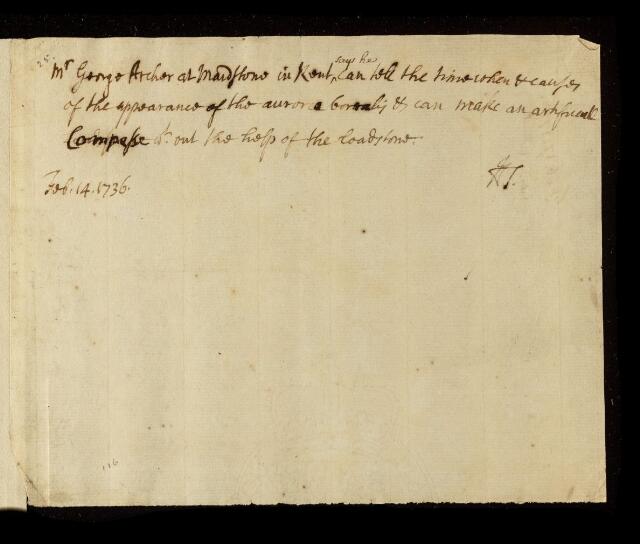 25.
says he
Mr George Archer at Maidstone in Kent, can tell the time when & causes
of the appearance of the aurora borealis & can make an artificiall
Compasse wt. out the help of the loadstone.
Feb. 14. 1736.
116